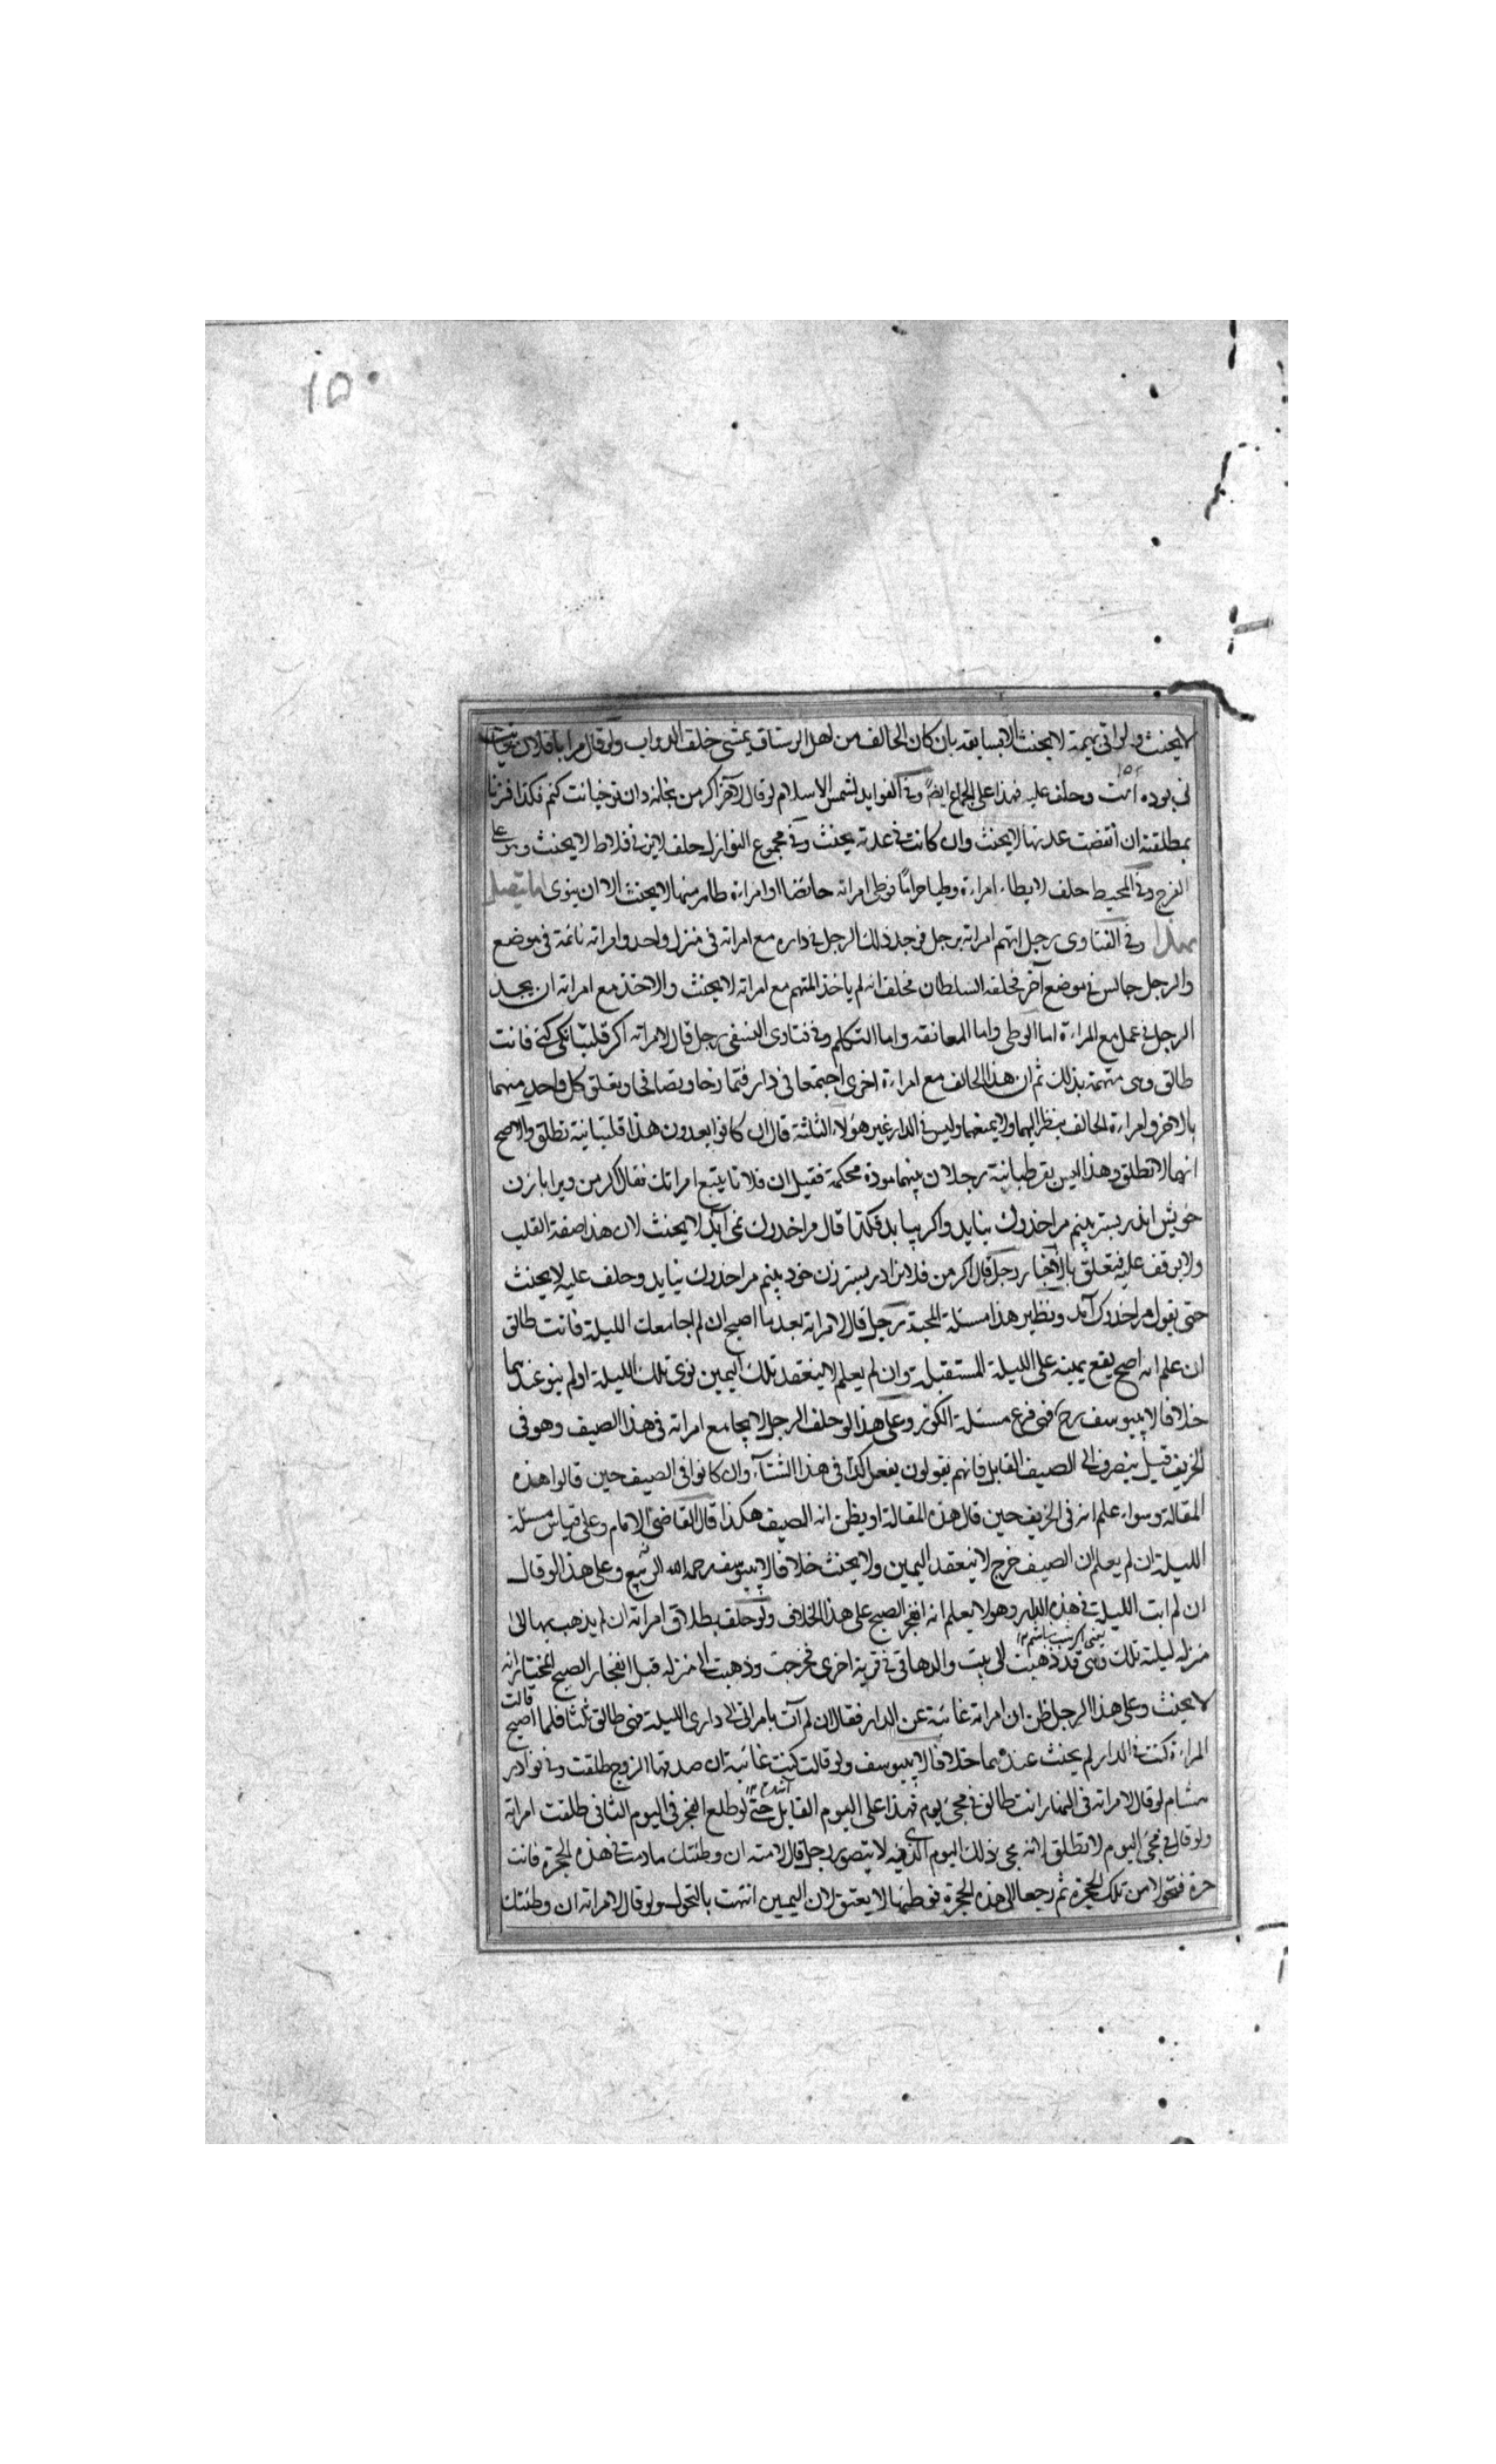 ١٥٠
لا يحنث ولو اتى بهيمة لا يحنث الا بسابقه بان كان الحالف من اهل الرستاق يمشى خلف الدواب ولو قال مرا با فلان
نى بوده است وحلف عليه فهذا على الجماع ايضا وفى الفوايد لشمس الاسلام لو قال لآخر اكر من بخانه دان تو خيانت كنم فكذا فزنا
بمطلقته ان انقضت عدتها لا يحنث وان كانت فى عدته يحنث وفى مجموع النوازل حلف لا يزنى فلاط لا يحنث
الفرج وفى المحيط حلف لا يطاء امراءة وطيا حراما فوطى امراته حائضا او امراءة ظاهر منها لا يحنث الا ان ينوى ما يتصل
بهذا وفى الفتاوى رجل اتهم امراته برجل فوجد ذلك الرجل فى داره مع امراته فى منزل واحد وامراته نائمة فى موضع
والرجل جالس فى موضع آخر فحلفه السلطان فحلف انه لم ياخذ المتهم مع امراته لا يحنث والاخذ مع امراته ان يجد
الرجل فى عمل مع المراءة اما الوطى واما المعانقه واما التكلم وفى فتاوى النسفى رجل قال لامراته اكر قلبتانكى كنى فانت
طالق وهى متهمة بذلك ثم ان هذا الحالف مع امراءة اخرى اجتمعا فى دار فتمازحا وتصافحا وتعلق كل واحد منهما
بالاخر وامراءة الحالف ينظر اليهما ولا يمنعهما وليس فى الدار غير هؤلاء الثلثة قال ان كانوا يعدون هذا قلتبانية تطلق والاصح
انها لا تطلق وهذا ليس بقرطبانية رجلان بينهما مودة محكمة فقيل ان فلانا يتبع امراتك فقال اكر من ويرا با زن
خويش اندر بستر بينم مرا خذوك نيايد واكر بيايد فكذا قال مرا خذوك نمى آيد لا يحنث لان هذا صفة القلب
ولا يوقف عليه فتعلق بالاخبار رجل قال اكر من فلانرا در بستر زن خود بينم مرا خذوك نيايد وحلف عليه لا يحنث
حتى يقول مرا خذوك آمد ونظير هذا مسئلة المحبة رجل قال لامراته بعد ما اصبح ان لم اجامعك الليلة فانت طالق
ان علم انه اصبح يقع يمينه على الليلة المستقبلة وان لم يعلم لا ينعقد تلك اليمين نوى تلك الليلة او لم ينو عندهما
خلافا لابيوسف رح فهى فرع مسئلة الكوز وعلى هذا لو حلف الرجل لا يجامع امراته فى هذا الصيف وهو فى
الخريف قيل ينصرف الى الصيف القابل فانهم يقولون يفعل كذا فى هذا الشتآء وان كانوا فى الصيف حين قالوا هذه
المقالة وسواء علم انه فى الخريف حين قال هذه المقالة او يظن انه الصيف هكذا قال القاضى الامام وعلى قياس مسئلة
الليلة ان لم يعلم ان الصيف خرج لا ينعقد اليمين ولا يحنث خلافا لابيوسف رحمه الله وعلى هذا لو قال
ان لم ابت الليلة فى هذه الدار وهو لا يعلم انه انفجر الصبح على هذا الخلاف ولو حلف بطلاق امراته ان لم يذهب بها الى
منزله ليلته تلك وهى قد ذهبت الى بيت والدها فى قرية اخرى فخرجت وذهبت الى منزله قبل انفجار الصبح المختار انه
لا يحنث وعلى هذا الرجل ظن ان امراته غائبة عن الدار فقال ان لم آت بامراتى الى دارى الليلة فهى طالق ثلثا فلما اصبح قالت
المراءة كنت فى الدار لم يحنث عندهما خلافا لابيوسف ولو قالت كنت غائبة ان صدقها الزوج طلقت وفى نوادر
هشام لو قال لامراته فى النهار انت طالق فى مجئ يوم فهذا على اليوم القابل حتى لو طلع الفجر فى اليوم الثانى طلقت امراته
ولو قال فى مجئ اليوم لا تطلق لانه مجئ ذلك اليوم الذى فيه لا يتصور رجل قال لامته ان وطئتك ما دمت فى هذه الحجرة فانت
حرة فتحولا من تلك الحجرة ثم رجعا الى هذه الحجرة فوطئها لا يعتق لان اليمين انتهت بالتحول ولو قال لامراته ان وطئتك